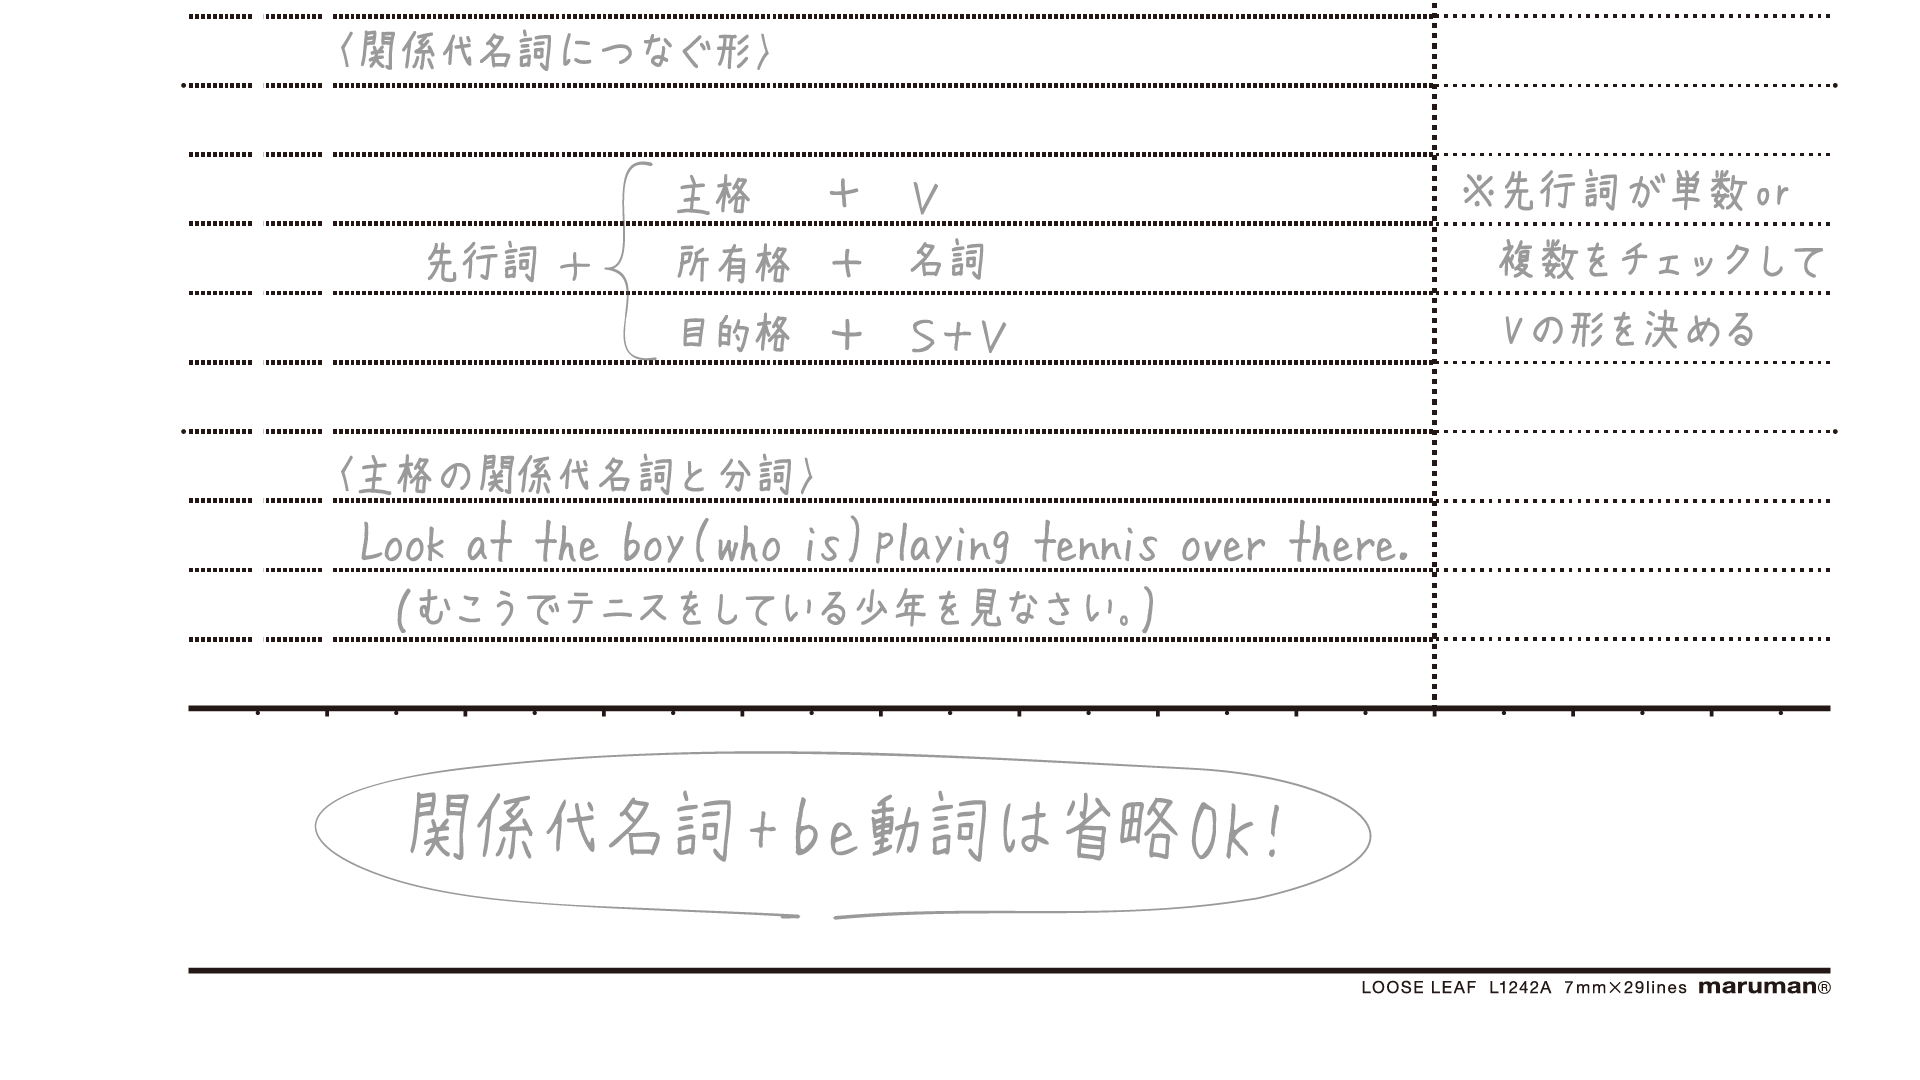 〈関係代名詞につなぐ形〉
主格 + V
※先行詞が単数or
先行詞 +
所有格 + 名詞
複数をチェックして
目的格 + S+V
Vの形を決める
〈主格の関係代名詞と分詞〉
Look at the boy(who is)playing tennis over there.
(むこうでテニスをしている少年を見なさい。)
関係代名詞+be動詞は省略Ok!
LOOSE LEAF L1242A 7mm×29lines maruman®